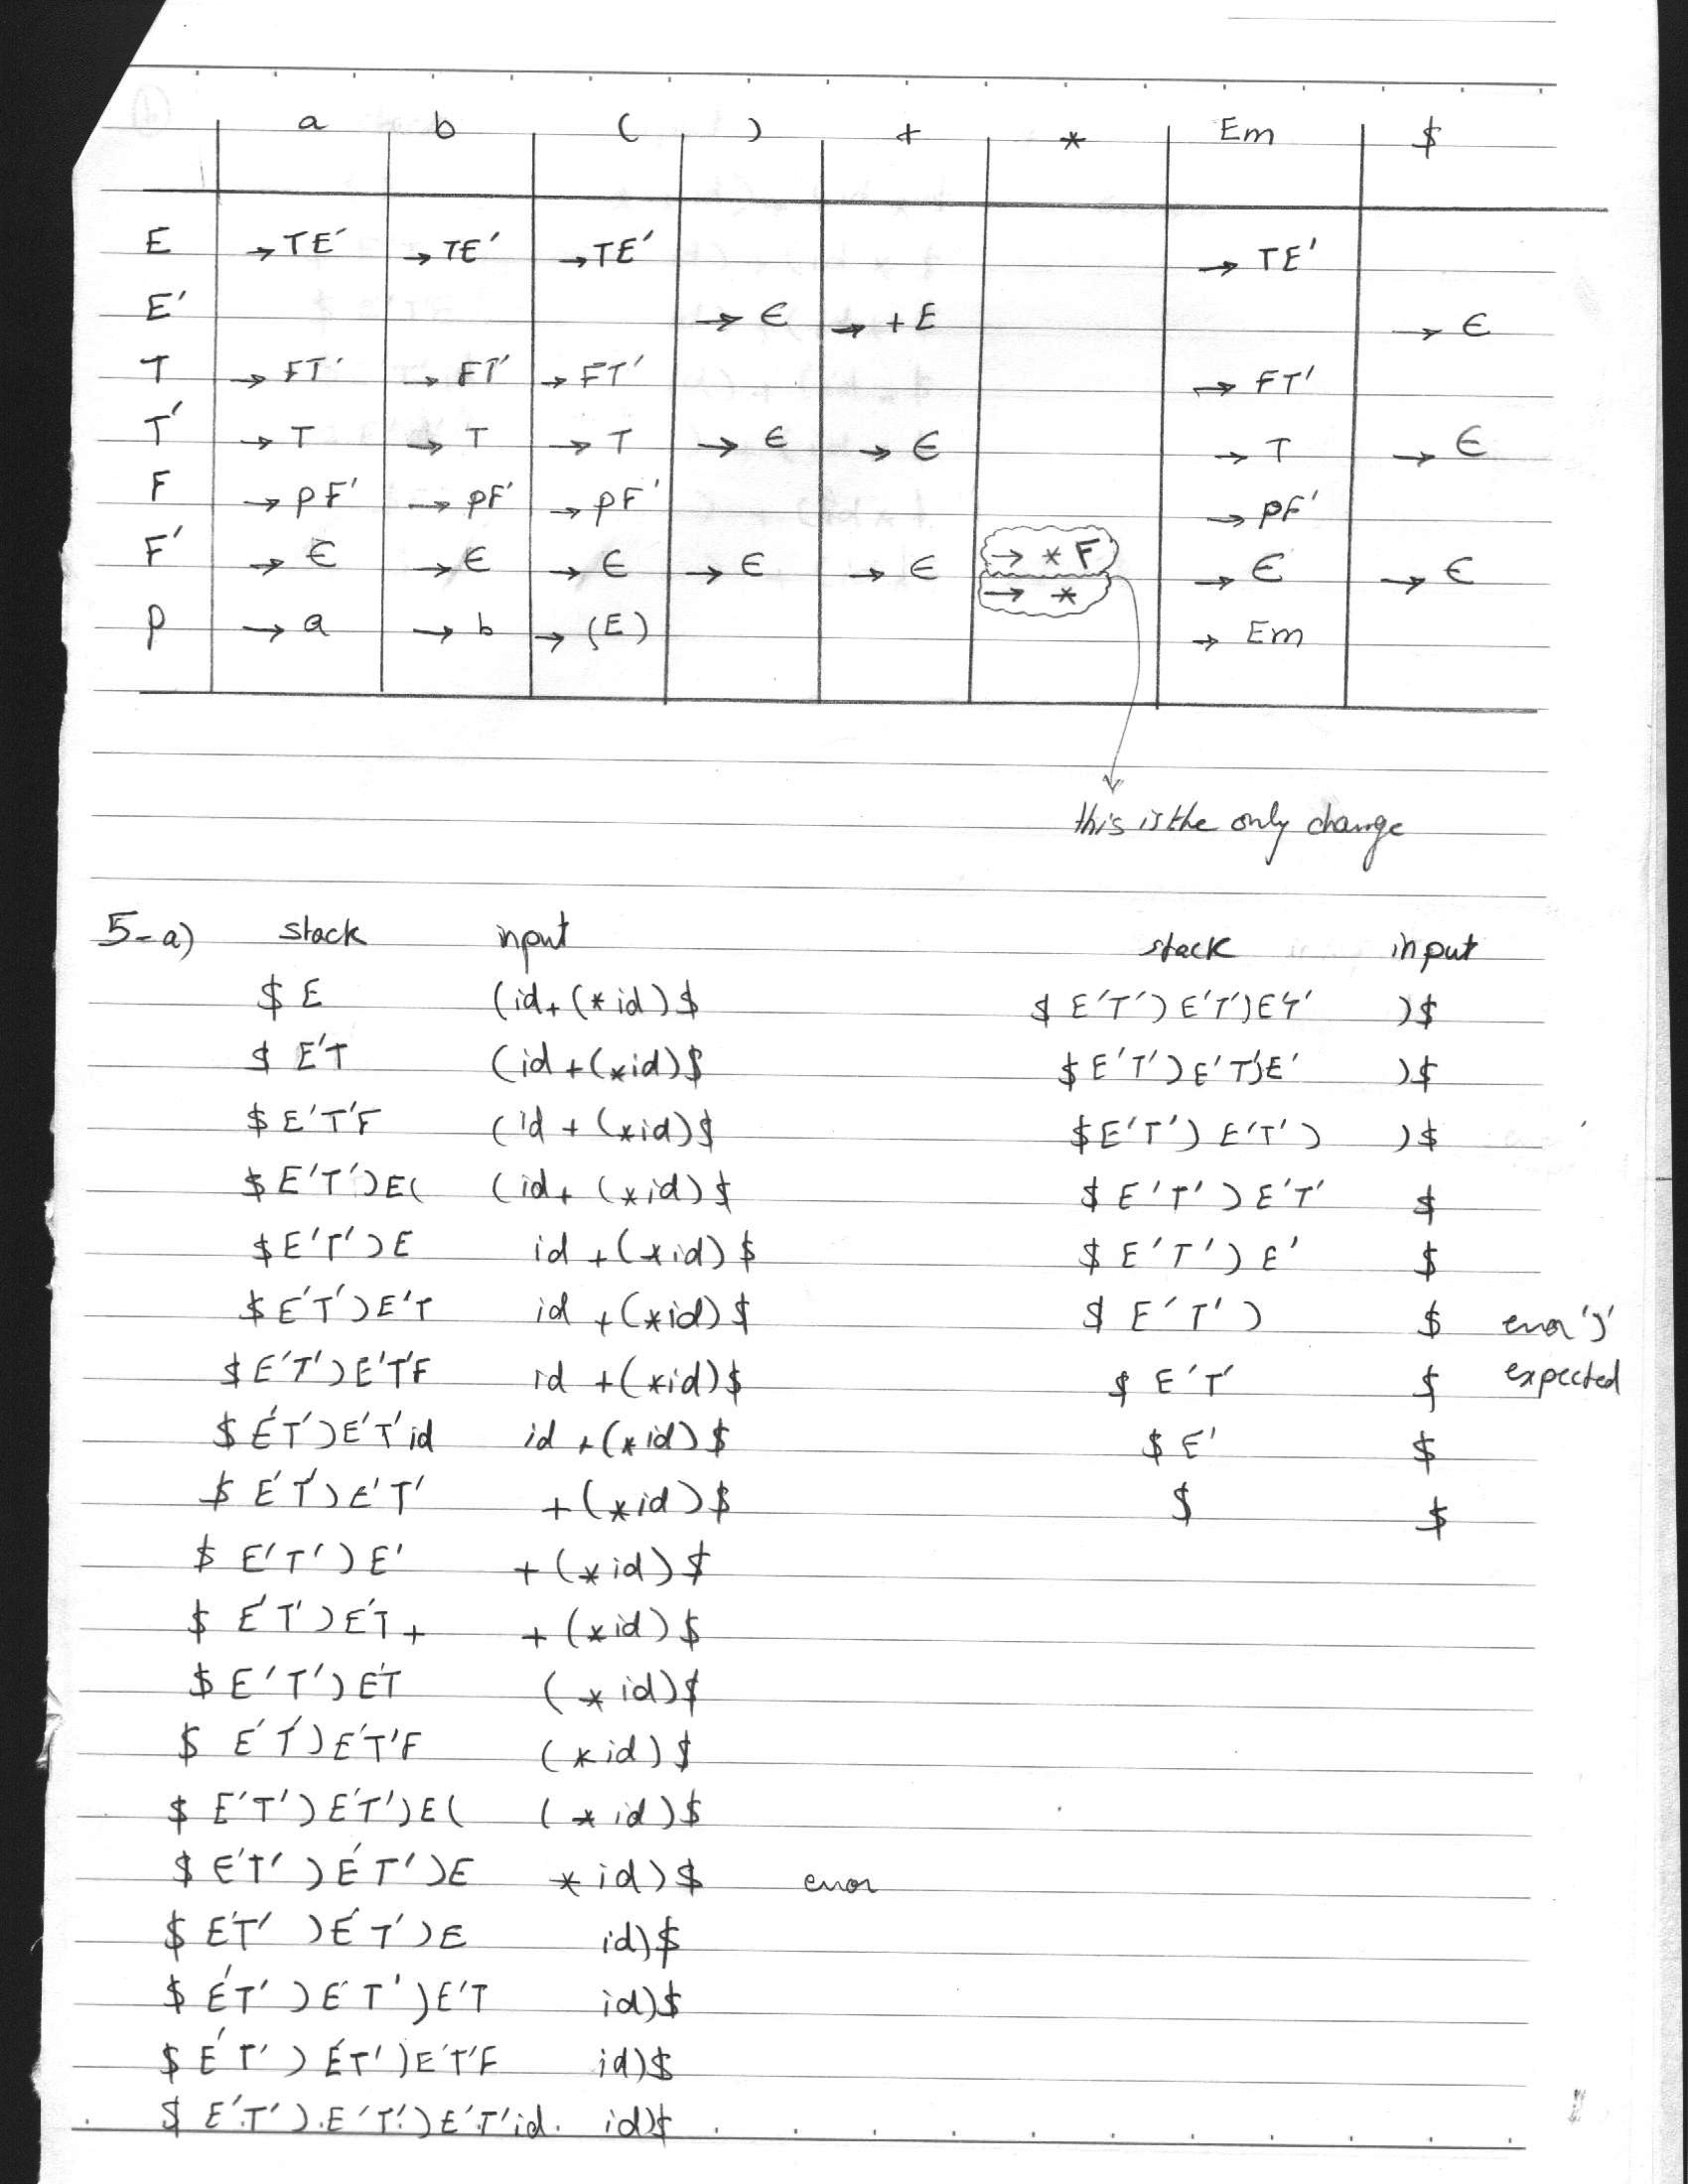 a b ( ) + * Em $
E → TE' → TE' → TE' → TE'
E' → ϵ → +E → ϵ
T → FT' → FT' → FT' → FT'
T' → T → T → T → ϵ → ϵ → T → ϵ
F → PF' → PF' → PF' → PF'
F' → ϵ → ϵ → ϵ → ϵ → ϵ → *F → ϵ → ϵ
→ *
P → a → b → (E) → Em
this is the only change
5-a) stack input
$ E (id+(*id)$
$ E'T (id+(*id)$
$ E'T'F (id+(*id)$
$ E'T')E( (id+(*id)$
$ E'T')E id+(*id)$
$ E'T')E'T id+(*id)$
$ E'T')E'T'F id+(*id)$
$ E'T')E'T'id id+(*id)$
$ E'T')E'T' +(*id)$
$ E'T')E' +(*id)$
$ E'T')E'T+ +(*id)$
$ E'T')E'T (*id)$
$ E'T')E'T'F (*id)$
$ E'T')E'T')E( (*id)$
$ E'T')E'T')E *id)$ error
$ E'T')E'T')E id)$
$ E'T')E'T')E'T id)$
$ E'T')E'T')E'T'F id)$
$ E'T')E'T')E'T'id id)$
stack input
$ E'T')E'T')E'T' )$
$ E'T')E'T')E' )$
$ E'T')E'T') )$
$ E'T')E'T' $
$ E'T')E' $
$ E'T') $ error ')'
expected
$ E'T' $
$ E' $
$ $